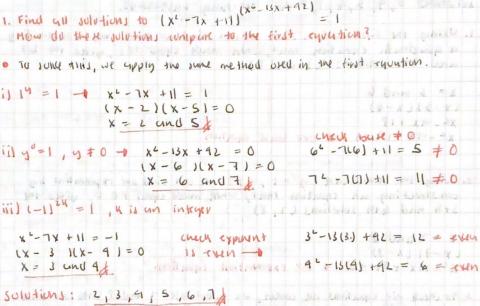 1. Find all solutions to (x² - 7x + 11)^(x² - 13x + 42) = 1
How do these solutions compare to the first equation?
• To solve this, we apply the same method used in the first equation.
i) 1^y = 1 → x² - 7x + 11 = 1
(x - 2)(x - 5) = 0
x = 2 and 5
check base ≠ 0
ii) y⁰ = 1, y ≠ 0 → x² - 13x + 42 = 0 6² - 7(6) + 11 = 5 ≠ 0
(x - 6)(x - 7) = 0
x = 6 and 7 7² - 7(7) + 11 = 11 ≠ 0
iii) (-1)^2k = 1, k is an integer
x² - 7x + 11 = -1 check exponent 3² - 13(3) + 42 = 12 = even
(x - 3)(x - 4) = 0 is even →
x = 3 and 4 4² - 13(4) + 42 = 6 = even
Solutions: 2, 3, 4, 5, 6, 7